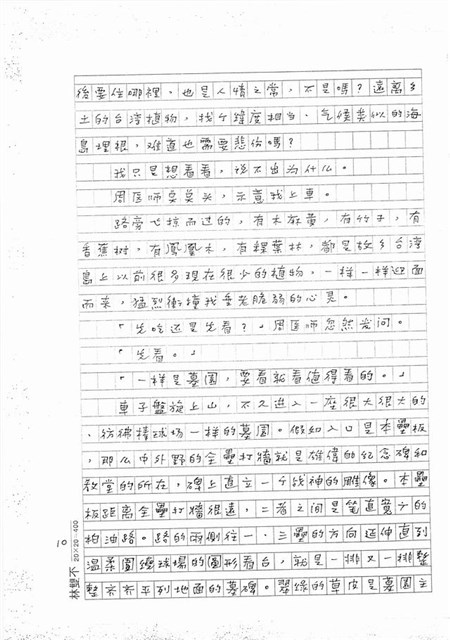 後要住哪裡。也是人情之常，不是嗎？遠離乡
土的台湾植物，找个緯度相当、气候类似的海
島埋根，难道也需要悲伤嗎？
我只是想看看，说不出为什么。
周医师点点头，示意我上車。
路旁飞掠而过的，有木麻黄，有竹子，有
香蕉树，有鳳凰木，有檳葉林，都是故乡台湾
島上以前很多现在很少的植物，一样一样迎面
而来，猛烈衝撞我垂老脆弱的心灵。
「先吃还是先看？」周医师忽然发问。
「先看。」
「一样是墓園，要看就看值得看的。」
車子盤旋上山，不久进入一座很大很大的
、彷彿棒球场一样的墓园。假如入口是本壘板
，那么中外野的全壘打牆就是雄偉的紀念碑和
教堂的所在，碑上直立一个战神的雕像。本壘
板距离全壘打牆很遠，二者之间是笔直寬大的
柏油路。路的两側往一、三壘的方向延伸直到
温柔圍繞球場的圆形看台，就是一排又一排整
整齐齐平列地面的墓碑。翠綠的草皮是墓園主
10
林雙不 20×20=400